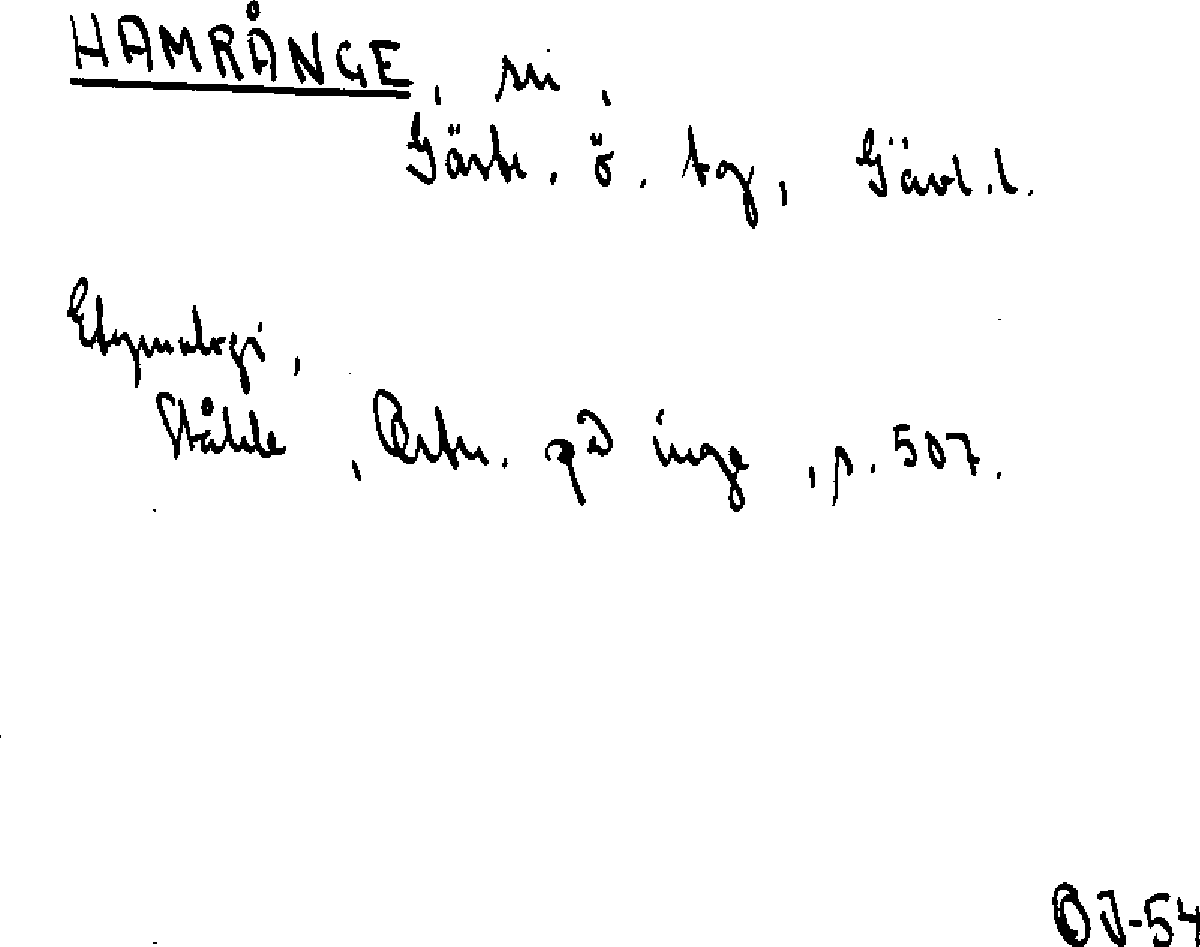 HAMRÅNGE, sn,
Gästr. ö. tg, Gävl. l.
Etymologi,
Ståhle, Ortn. på inge, s. 507.
OJ-54